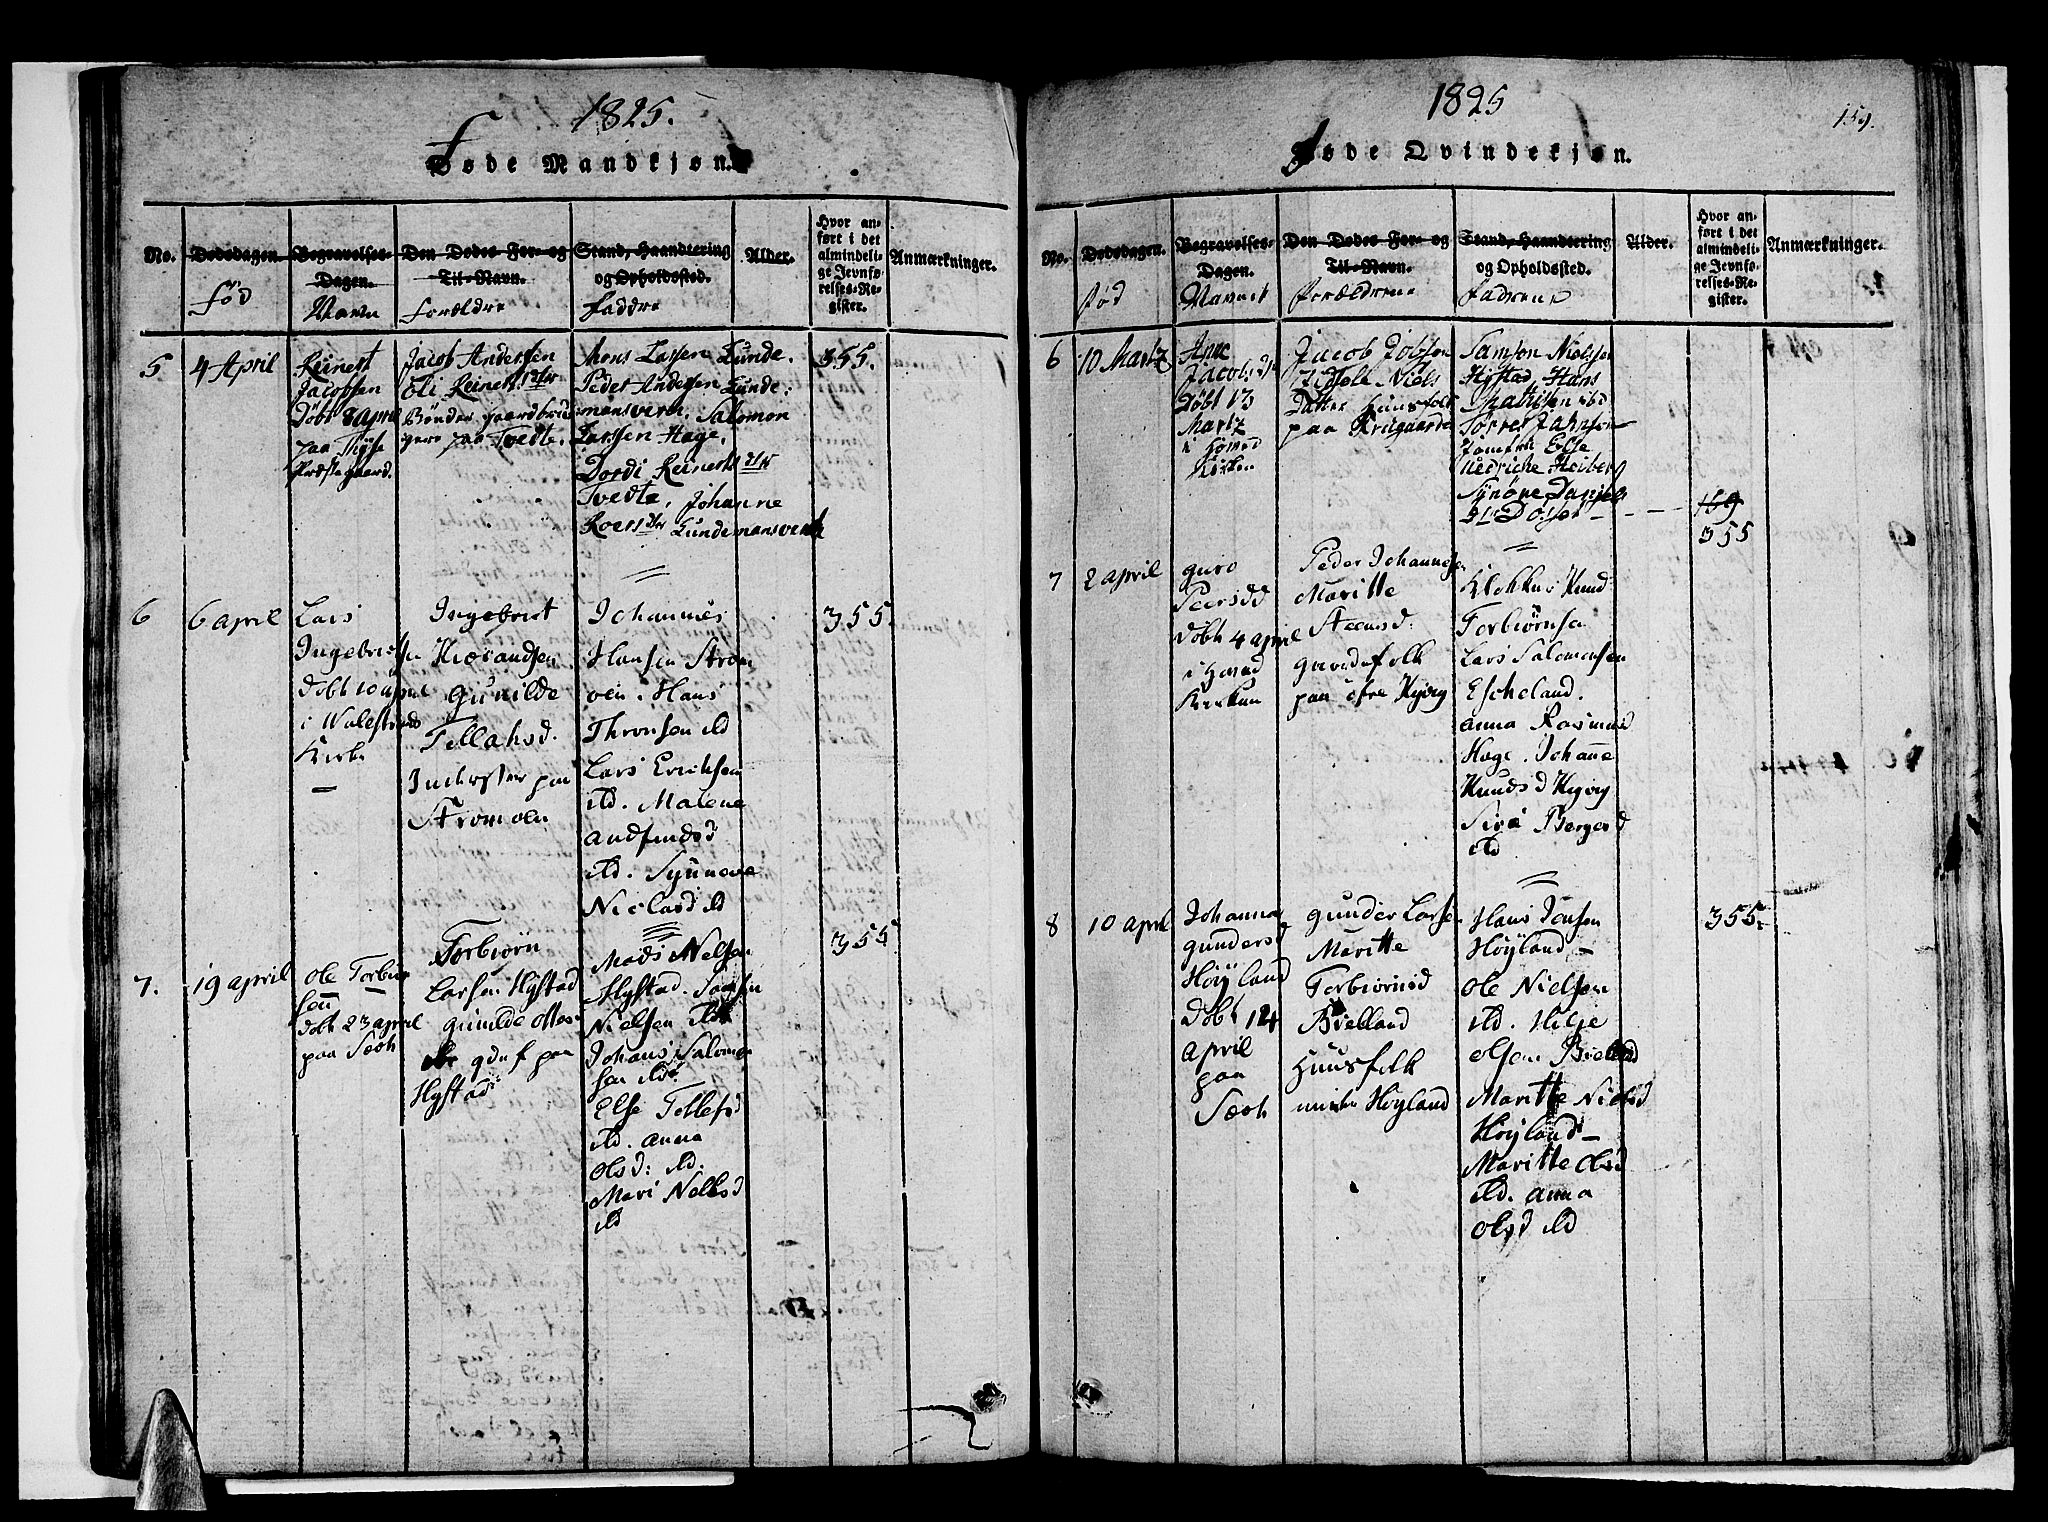 1825.
Føde Mandkjøn.
No.
Dødsdagen.
fød
Begravelses-
Dagen.
Navn
Den Dødes For- og
Til-Navn.
Forældre
Stand, Haandtering
og Opholdssted.
Faddre
Alder.
Hvor an-
ført i det
almindeli-
ge Jevnfø-
relses-Re-
gister.
Anmærkninger.
5
4 April
Reinert
Jacobsen
Døbt 8 April
paa
Præstegaard.
Jacob Andersen
Eli Reinertsdtr
Bønder gaardbru
gere paa Tvedte.
Mons Larsen Lunde.
Peder Andersen Lunde:
mansverk. Salomon
Larssen Hage.
Dordi Reinertsdtr
Tvedte, Johanne
Roersdtr Lundemansverk
355.
6
6 april
Lars
Ingebrictsen
døbt 10 april
i Walestrands
Kirke
Ingebrict
Hierandsen
Gunilde
Tellahsd.
Inderster paa
Strømøen
Johannes
Hansen Strøm
øen. Hans
Thronsen ibd
Lars Eriksen
ibd. Malene
andfindsd
ibd. Synneva
Nielsd ibd
355.
7.
19 april
Ole Torbiør
sen
døbt 23 april
paa Seoh
Torbiørn
Larsen Hystad
gunilde Ottos
dr gdef paa
Hystad
Mads Nelsen
Hystad. Samsen
Nielsen ibd
Johans Salomo
sen ibd.
Else Tollefsd
ibd. anna
Olsd: ibd.
Mari Nelsd
ibd
355
1825
159.
Føde Qvindekjøn.
No.
Dødsdagen.
fød
Begravelses-
Dagen.
Navnet
Den Dødes For- og
Til-Navn.
Forældrene
Stand, Haandtering
og Opholdssted.
Fadrene
Alder.
Hvor an-
ført i det
almindeli-
ge Jevnfø-
relses-Re-
gister.
Anmærkninger.
6
10 Martz
Anne
Jacobsdtr
Døbt 13
Martz
i
Kirken
Jacob Jobsen
Niels
Datter Huusfolk
paa
Samson Nielssen
Hystad Hans
ibd
Torres Jahnsen
Jomfru Else
Uldriche Heiberg
Synøve Daniels
dtr
169
355
7
2 april
guro
Peersdd
døbt 4 april
i hoved
Kirken
Peder Johannesen
Maritte
Steensd:
gaardefolk
paa øfre Hyvig
Klokker Knud
Torbiørnsen
Lars Salomonsen
Escheland.
anna Rasmusd
Hage. Johanne
Knudsd Hyvig
Siri Børgesd
ibd
8
10 april
Johanna
gundersd
Høyland
døbt 14
april
paa
Seoh
gunder Larsen
Maritte
Torbiørnsd
Bielland
Huusfolk
under Høyland
Hans Jonsen
Høyland -
Ole Nielsen
ibd. Hilje
olsen Bielland
Maritte Nielsd
Høyland -
Maritte Olsd
ibd. anna
Olsd ibd
355.